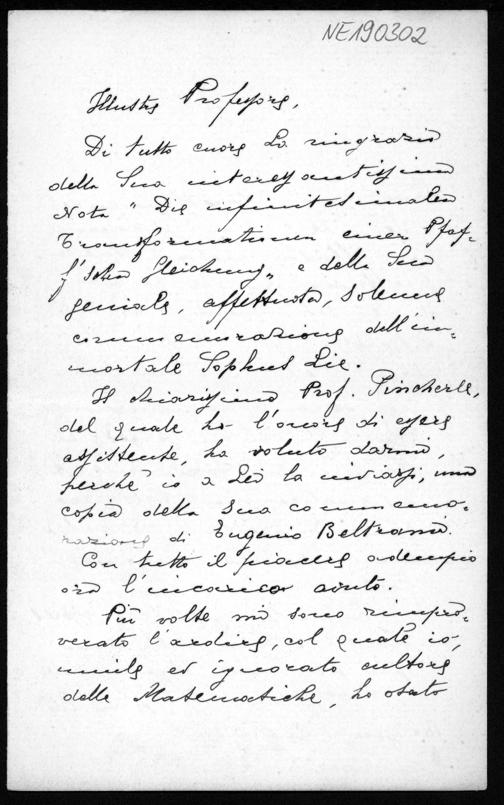 NE190302
Illustre Professore,
Di tutto cuore La ringrazio
della Sua interessantissima
Nota "Die infinitesimalen
Transformationen einer Pfaf-
f'schen Gleichung„ e della Sua
geniale, affettuosa, solenne
commemorazione dell'im-
mortale Sophus Lie.
Il chiarissimo Prof. Pincherle,
del quale ho l'onore di essere
assistente, ha voluto darmi,
perchè io a Lei la inviassi, una
copia della sua commemo-
razione di Eugenio Beltrami.
Con tutto il piacere adempio
ora l'incarico avuto.
Più volte mi sono rimpro-
verato l'ardire, col quale io,
umile ed ignorato cultore
delle Matematiche, ho osato